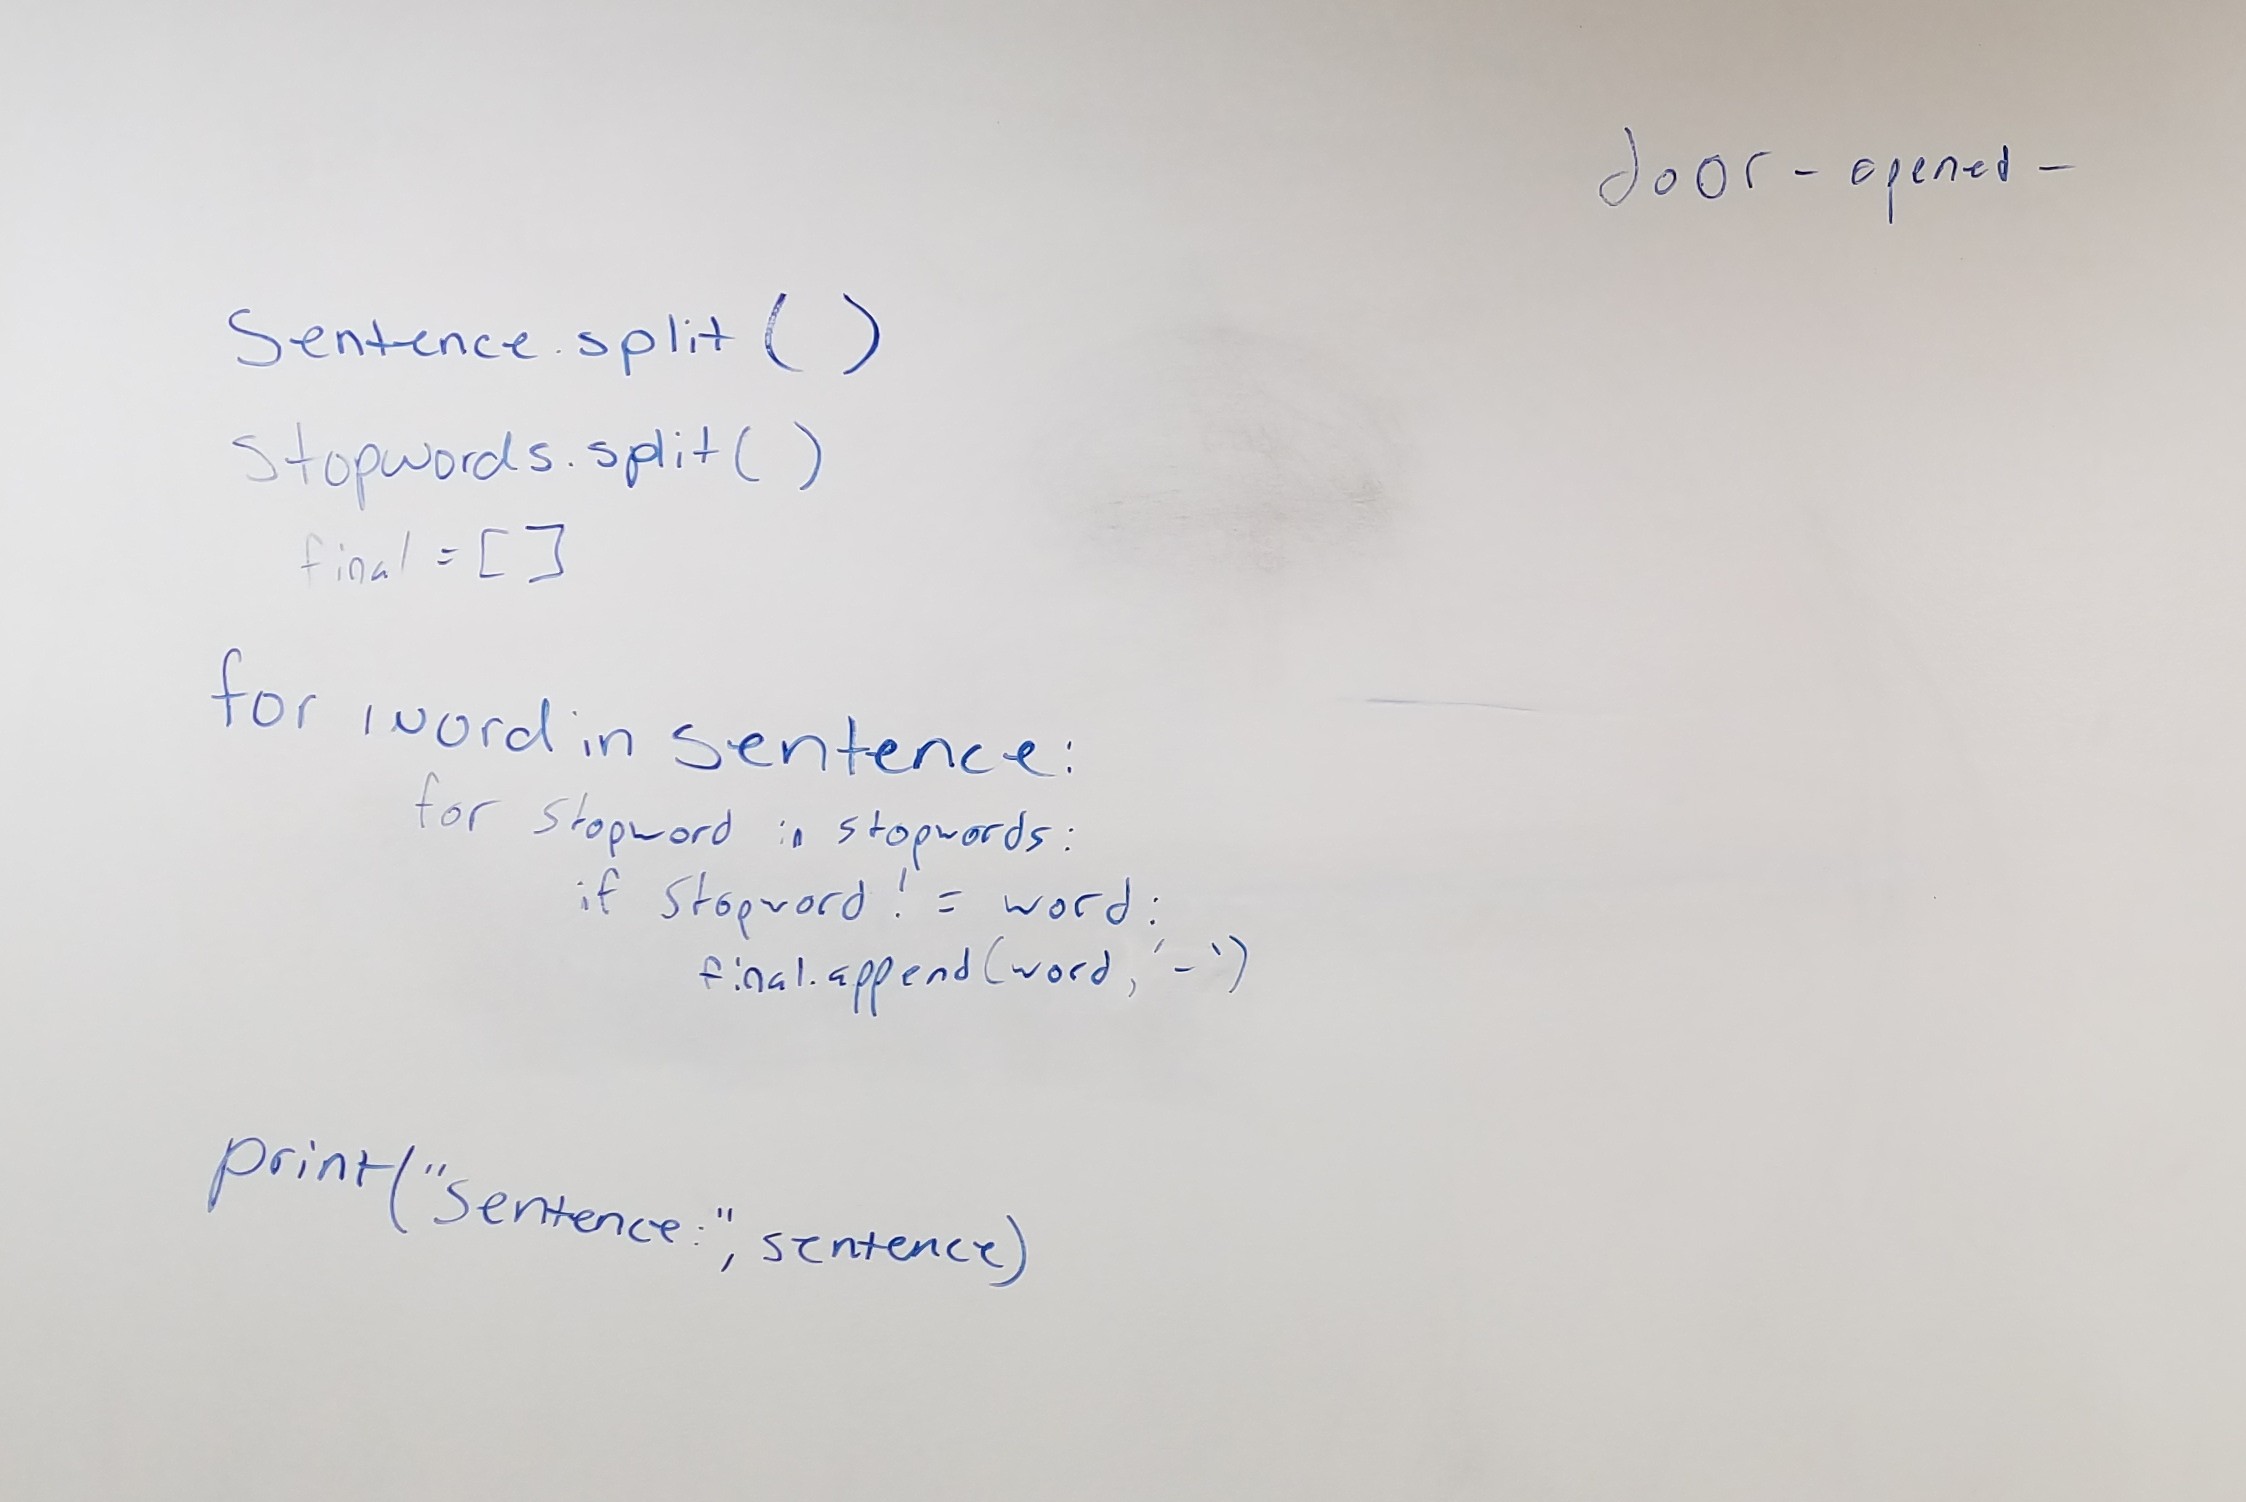 door - opened -
Sentence.split( )
Stopwords.split( )
final = [ ]
for word in sentence:
for stopword in stopwords:
if Stopword != word:
final.append(word, '-')
print("Sentence:", sentence)